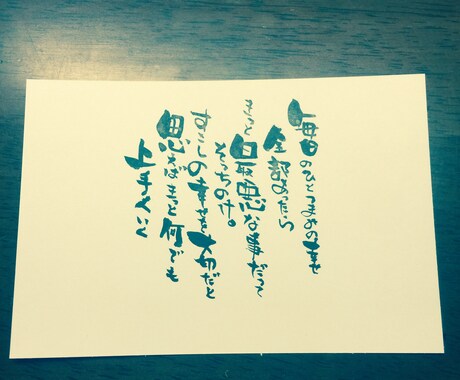 毎日のひとつまみの幸せ
全部あったら
きっと最悪な事だって
そっちのけ。
すこしの幸せを大切だと
思えばきっと何でも
上手くいく